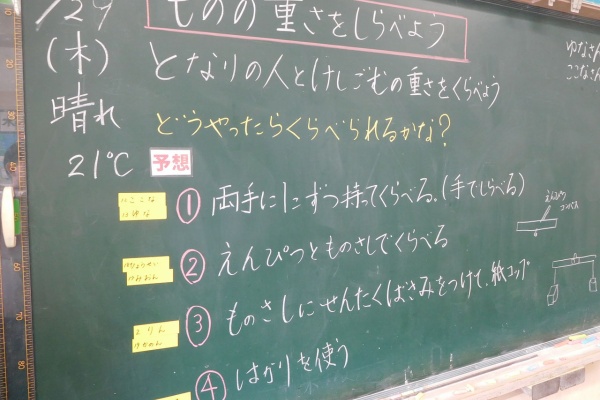 /29
ものの重さをしらべよう
(木)
となりの人とけしごむの重さをくらべよう
晴れ
どうやったらくらべられるかな?
21℃
予想
①両手に1こずつ持ってくらべる。(手でしらべる)
②えんぴつとものさしでくらべる
③ものさしにせんたくばさみをつけて、紙コップ
④はかりを使う
ゆなさん
ここなさん
えんぴつ